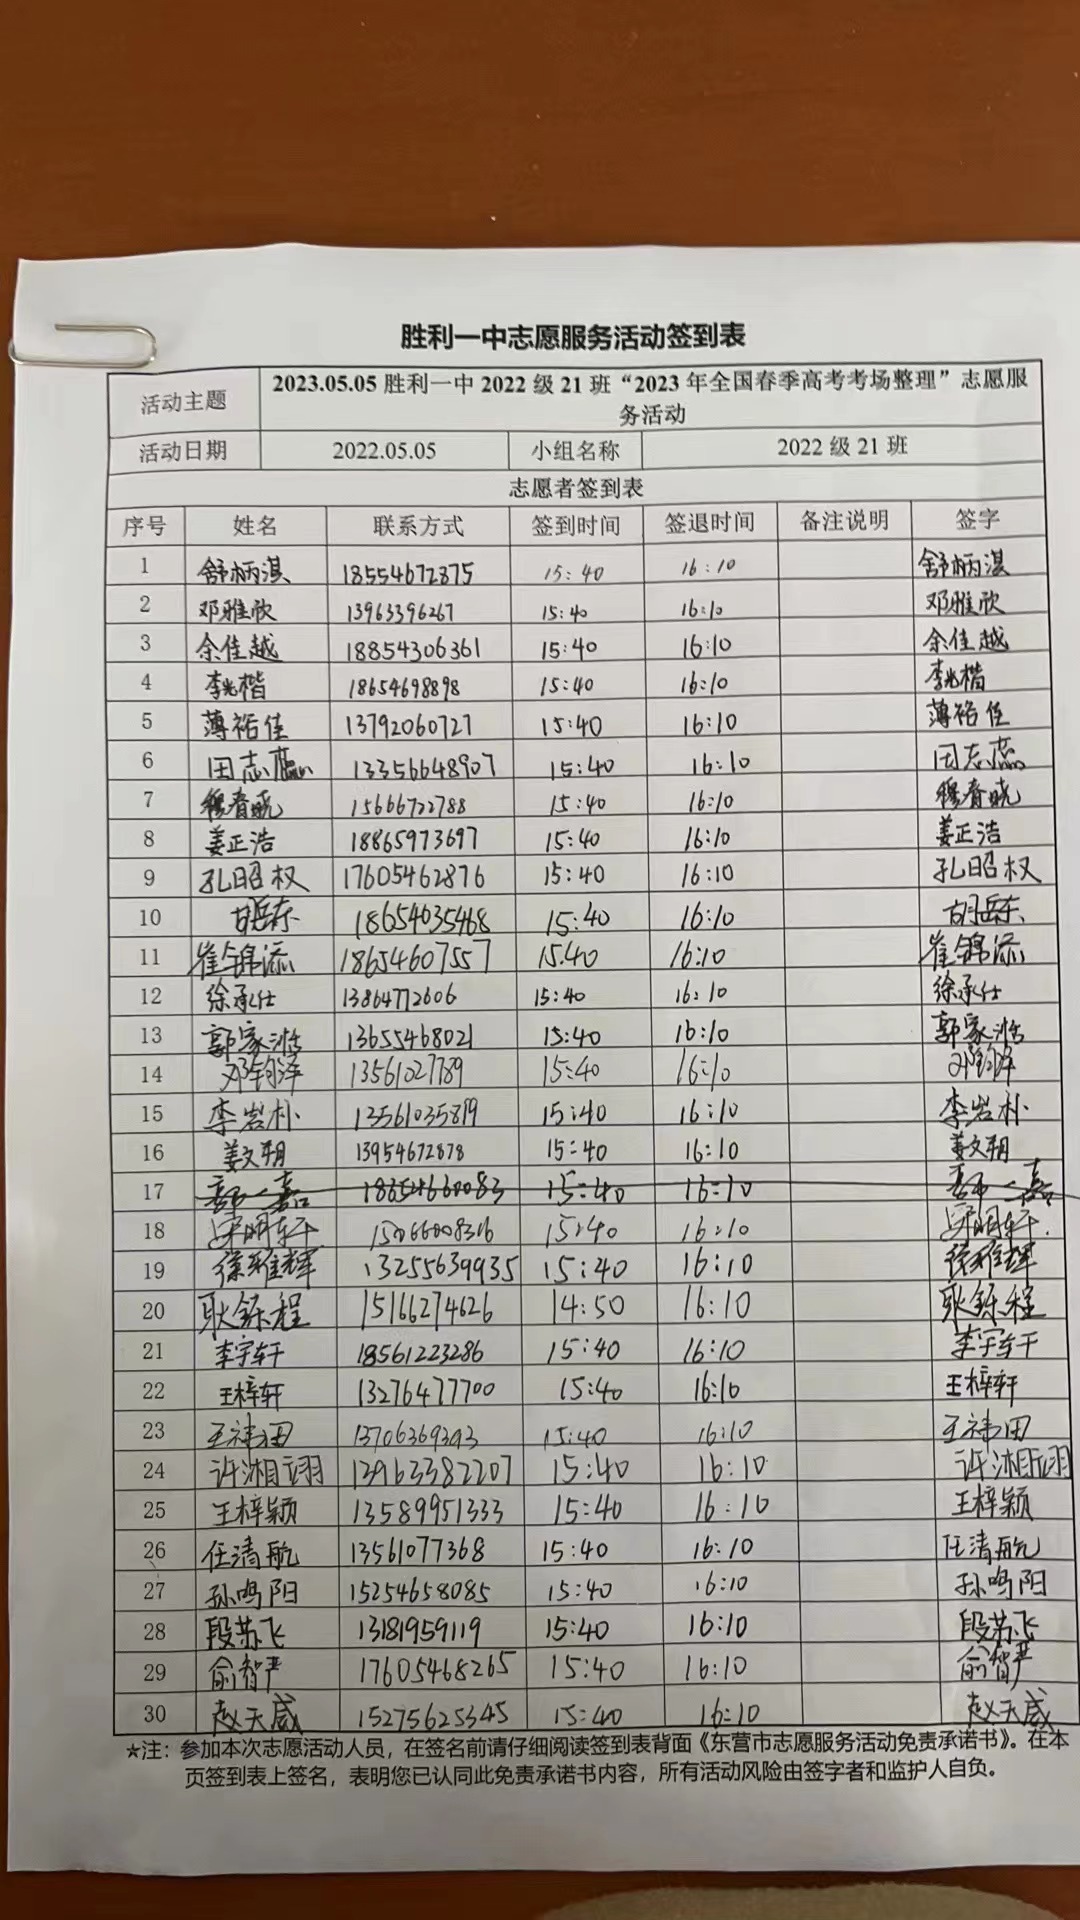 胜利一中志愿服务活动签到表
活动主题 2023.05.05 胜利一中 2022 级 21 班“2023 年全国春季高考考场整理”志愿服
务活动
活动日期 2022.05.05 小组名称 2022 级 21 班
志愿者签到表
序号 姓名 联系方式 签到时间 签退时间 备注说明 签字
1 舒炳淇 18554672875 15:40 16:10 舒炳淇
2 邓雅欣 13963396267 15:40 16:10 邓雅欣
3 余佳越 18854306361 15:40 16:10 余佳越
4 李兆楷 18654698898 15:40 16:10 李兆楷
5 薄裕佳 13792060727 15:40 16:10 薄裕佳
6 田志蕴 13356648907 15:40 16:10 田志蕴
7 穆春晓 15666722788 15:40 16:10 穆春晓
8 姜正浩 18865973697 15:40 16:10 姜正浩
9 孔昭权 17605462876 15:40 16:10 孔昭权
10 胡岳东 18654635468 15:40 16:10 胡岳东
11 崔锦添 18654607557 15:40 16:10 崔锦添
12 徐承仕 13864772606 15:40 16:10 徐承仕
13 郭家浩 13655468021 15:40 16:10 郭家浩
14 邓钧泽 13561027789 15:40 16:10 邓钧泽
15 李岩朴 13561035819 15:40 16:10 李岩朴
16 姜文朝 13954672878 15:40 16:10 姜文朝
17 18654660083 15:40 16:10
18 梁明轩 15066008316 15:40 16:10 梁明轩
19 徐雅辉 13255639935 15:40 16:10 徐雅辉
20 耿铄程 15166274626 14:50 16:10 耿铄程
21 李宇轩 18561223286 15:40 16:10 李宇轩
22 王梓轩 13276477700 15:40 16:10 王梓轩
23 王祎田 13706369393 15:40 16:10 王祎田
24 许湘翊 13963382207 15:40 16:10 许湘翊
25 王梓颖 13589951333 15:40 16:10 王梓颖
26 任清航 13561077368 15:40 16:10 任清航
27 孙鸣阳 15254658085 15:40 16:10 孙鸣阳
28 段苏飞 13181959119 15:40 16:10 段苏飞
29 俞智严 17605468265 15:40 16:10 俞智严
30 赵天威 15275625345 15:40 16:10 赵天威
★注：参加本次志愿活动人员，在签名前请仔细阅读签到表背面《东营市志愿服务活动免责承诺书》。在本
页签到表上签名，表明您已认同此免责承诺书内容，所有活动风险由签字者和监护人自负。